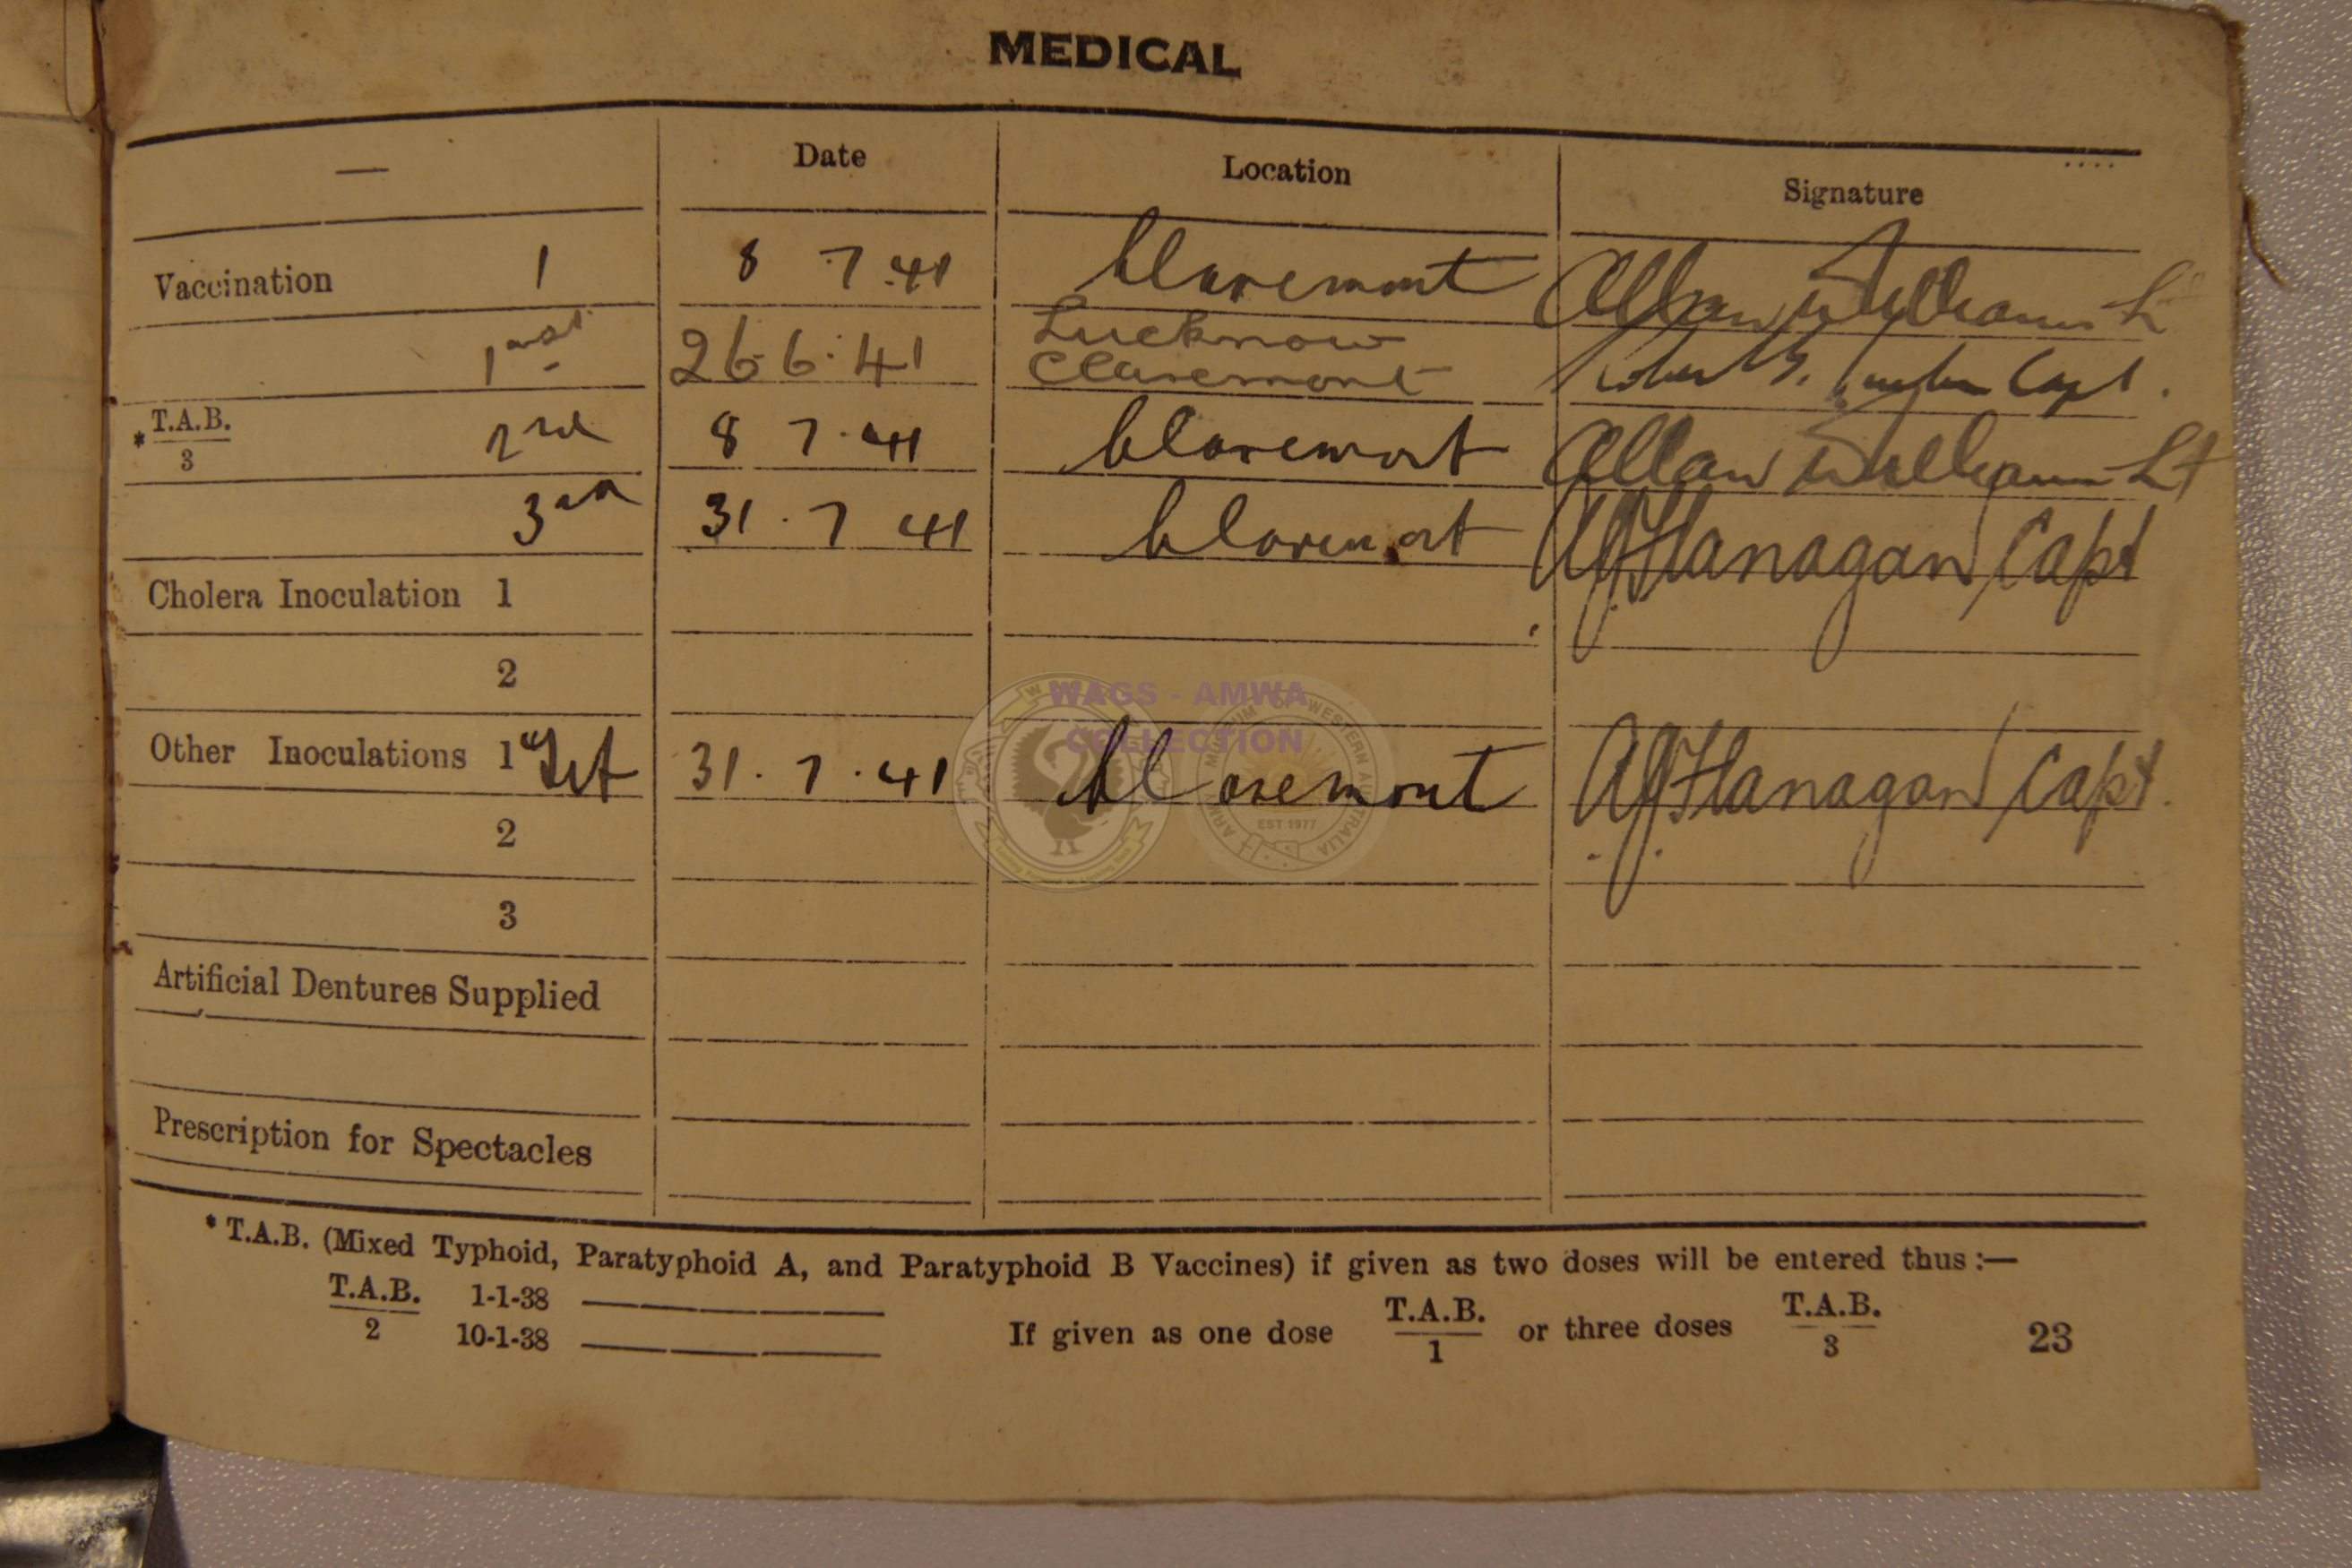 MEDICAL
— Date Location Signature
Vaccination 1 8 7.41 Claremont Allan Williams Lt
1st 26.6.41 Lucknow Claremont Capt.
*T.A.B./3 2nd 8 7.41 Claremont Allan Williams Lt
3rd 31.7 41 Claremont AJFlanagan Capt
Cholera Inoculation 1
2
Other Inoculations 1 Tet 31.7.41 Claremont AJFlanagan Capt.
2
3
Artificial Dentures Supplied
Prescription for Spectacles
* T.A.B. (Mixed Typhoid, Paratyphoid A, and Paratyphoid B Vaccines) if given as two doses will be entered thus :—
T.A.B./2 1-1-38
10-1-38
If given as one dose T.A.B./1 or three doses T.A.B./3
23
WAGS - AMWA
COLLECTION
ARMY MUSEUM OF WESTERN AUSTRALIA
EST 1977